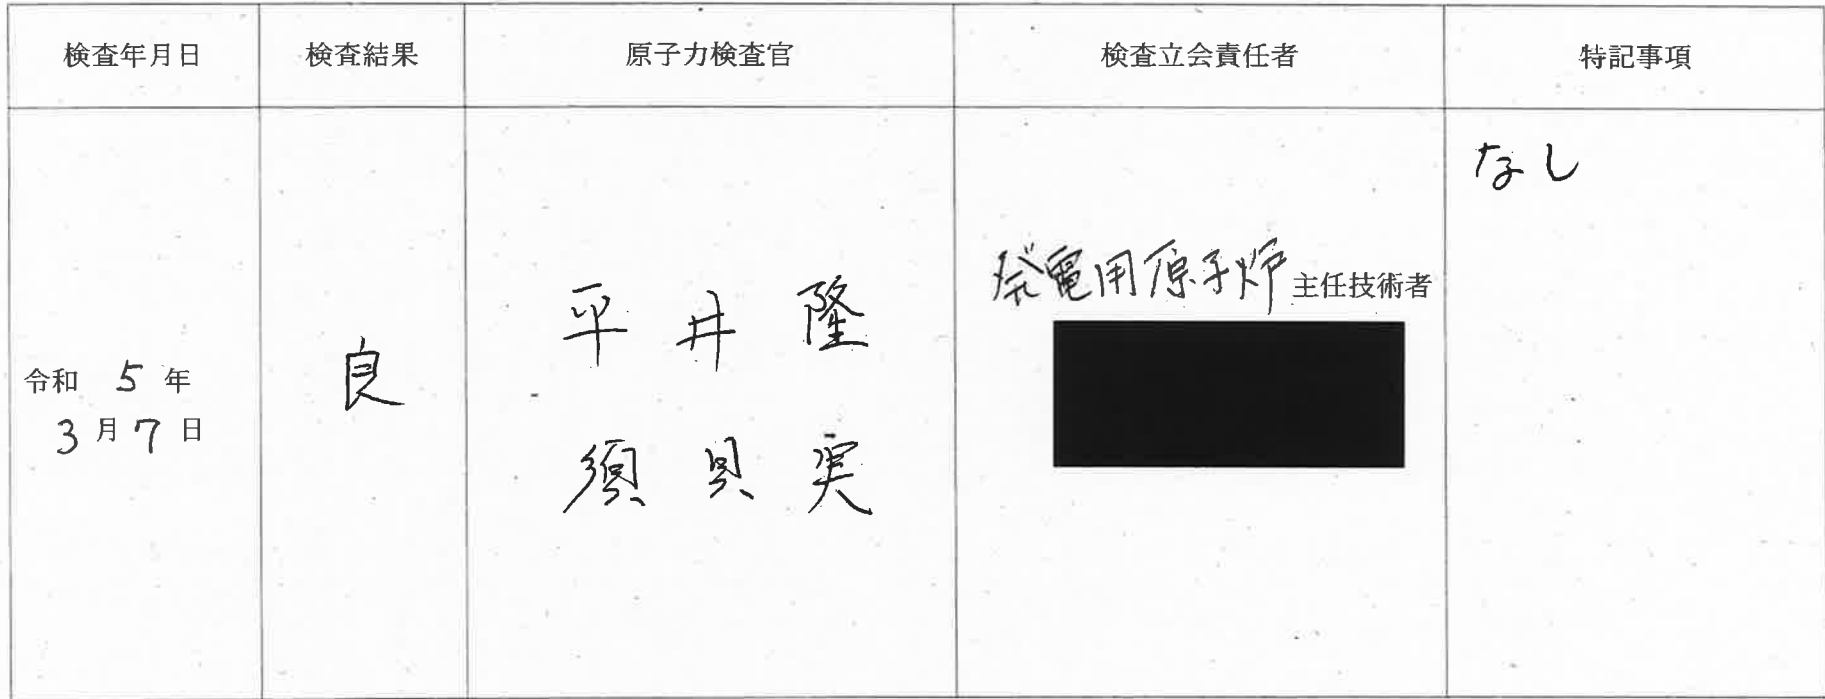 検査年月日 検査結果 原子力検査官 検査立会責任者 特記事項
令和 5 年
3 月 7 日
良
平井 隆
須貝 実
発電用原子炉主任技術者
なし